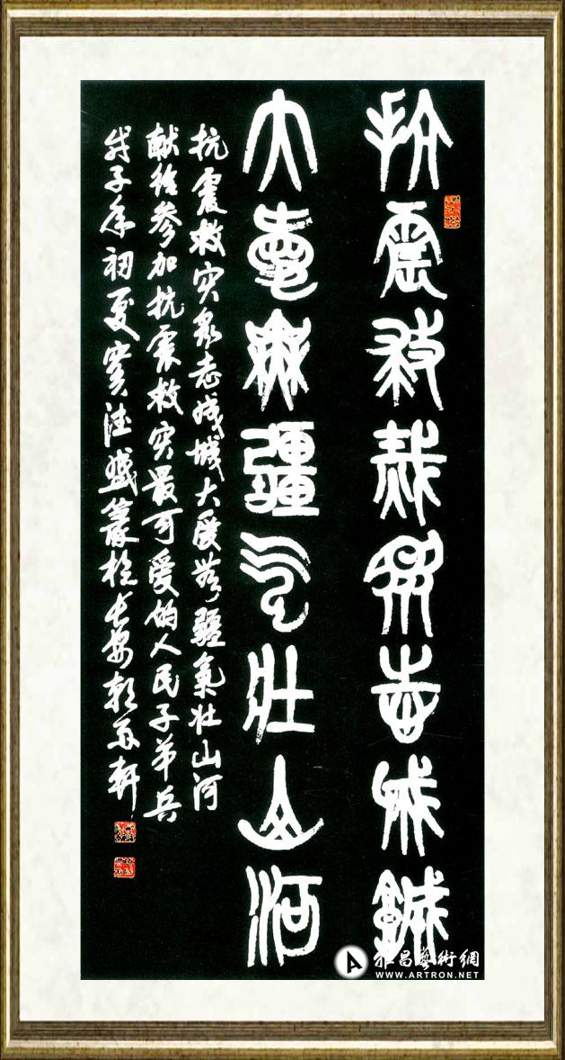 抗震救烖眾志成城
大愛無疆气壯山河
抗震救灾众志成城大爱无疆氣壮山河
献给参加抗震救灾最可爱的人民子弟兵
戊子年初夏篆於长安轩
雅昌藝術網
WWW.ARTRON.NET